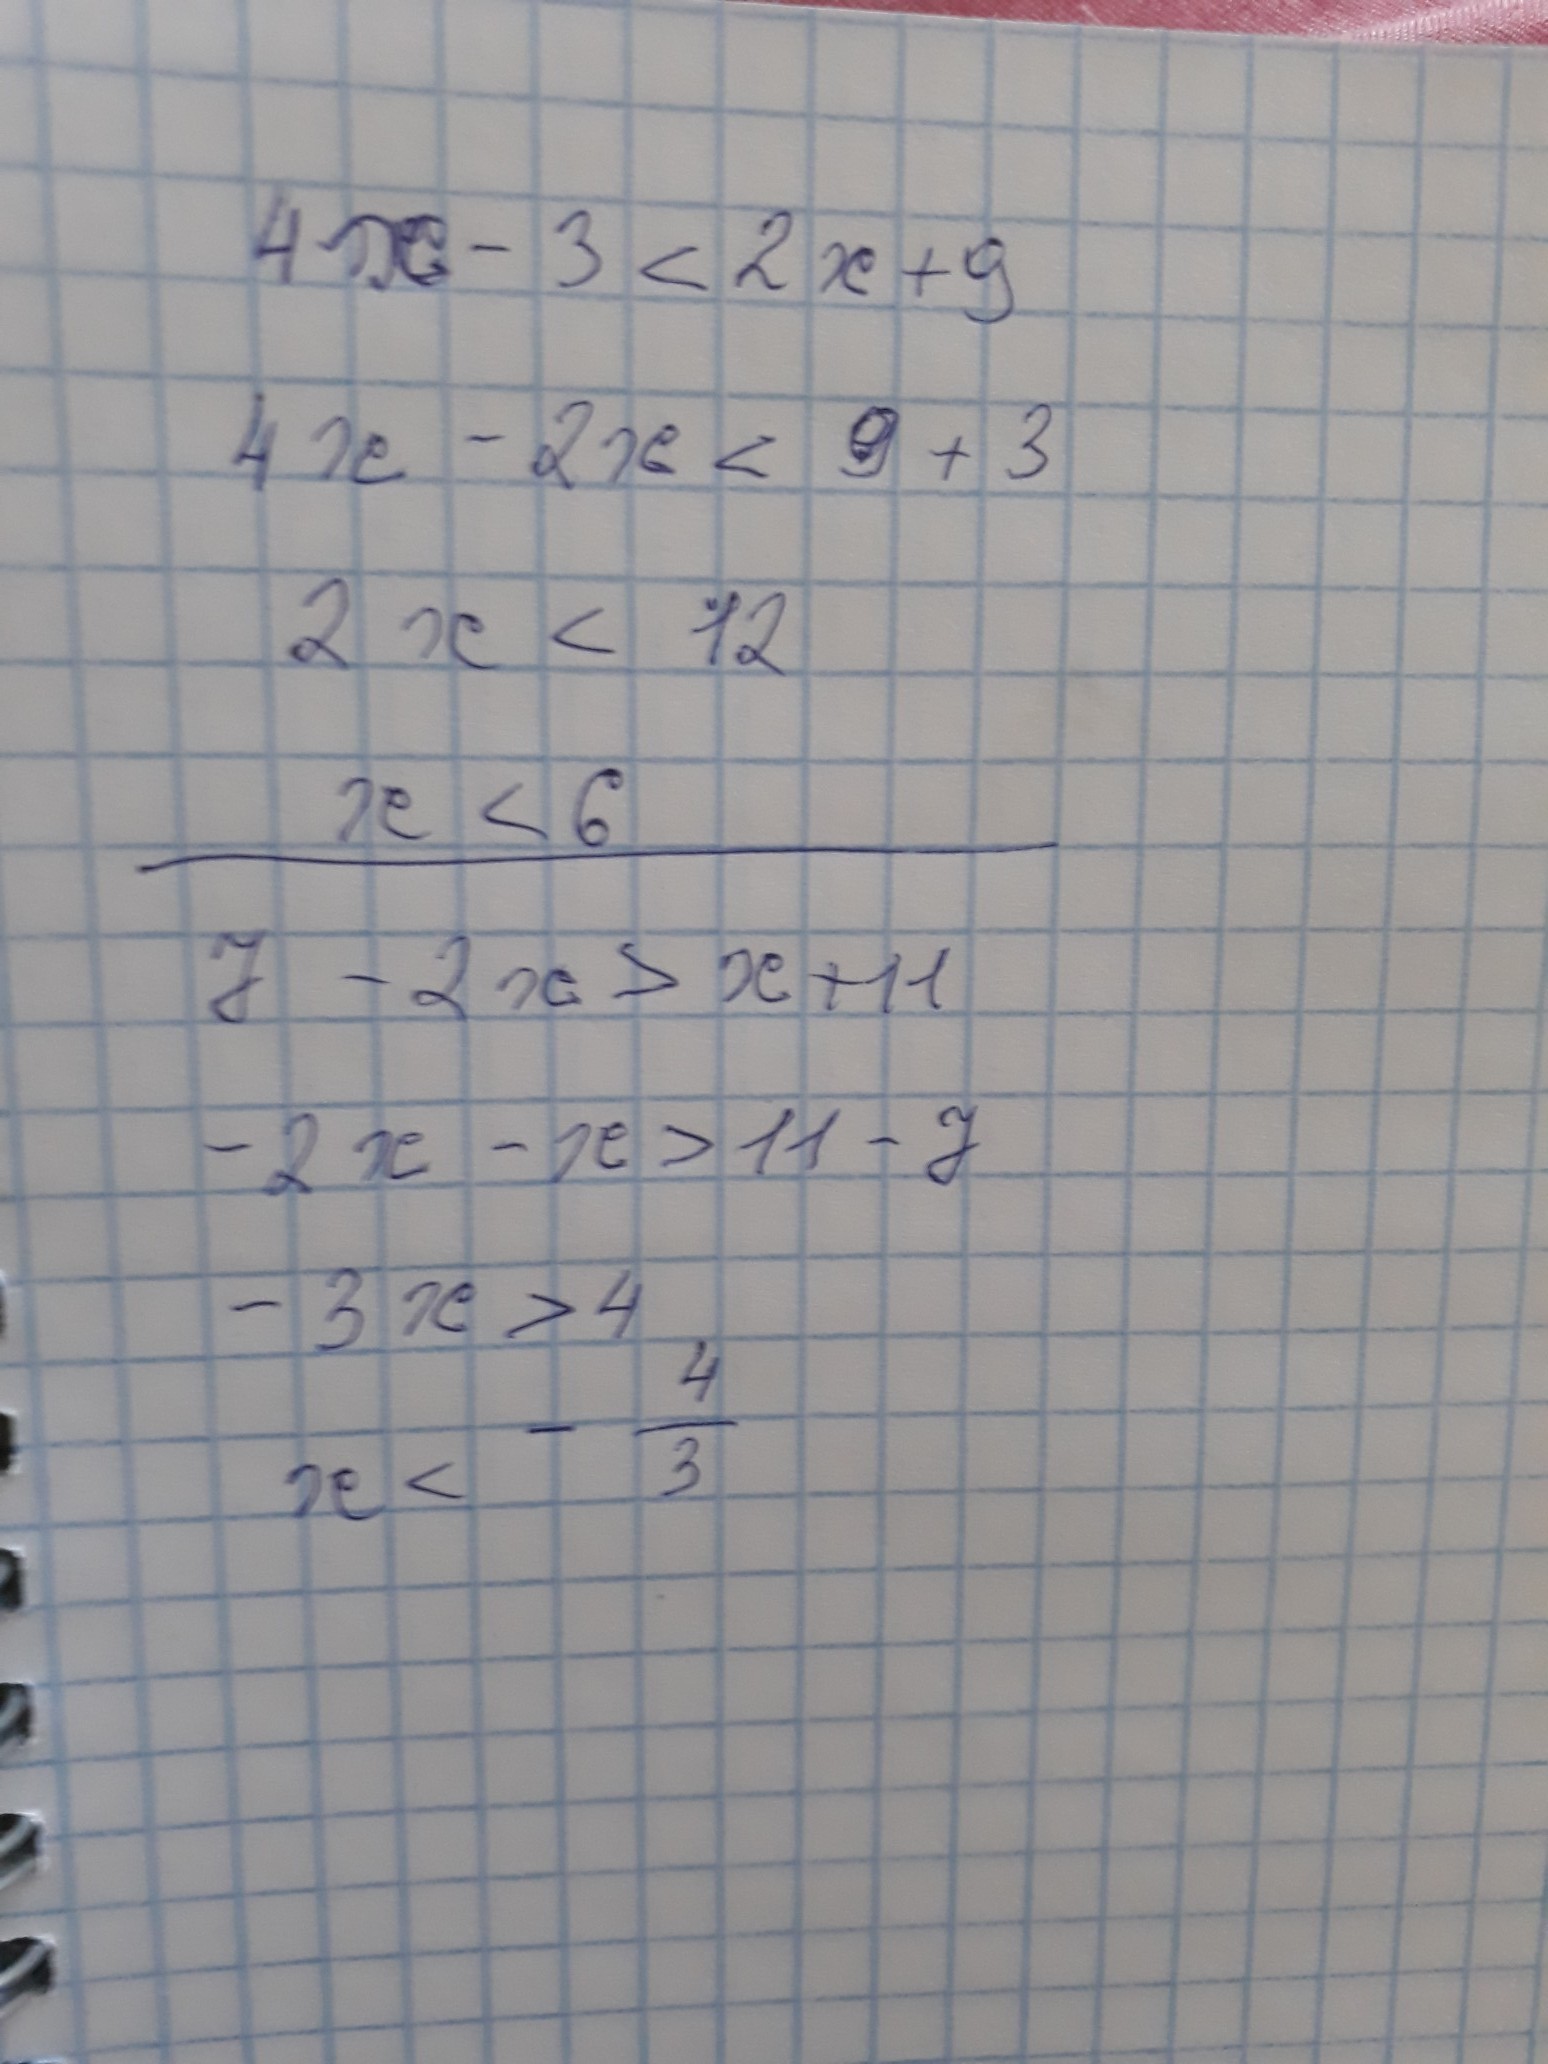 4x - 3 < 2x + 9
4x - 2x < 9 + 3
2x < 12
x < 6
7 - 2x > x + 11
-2x - x > 11 - 7
-3x > 4
x < - 4/3